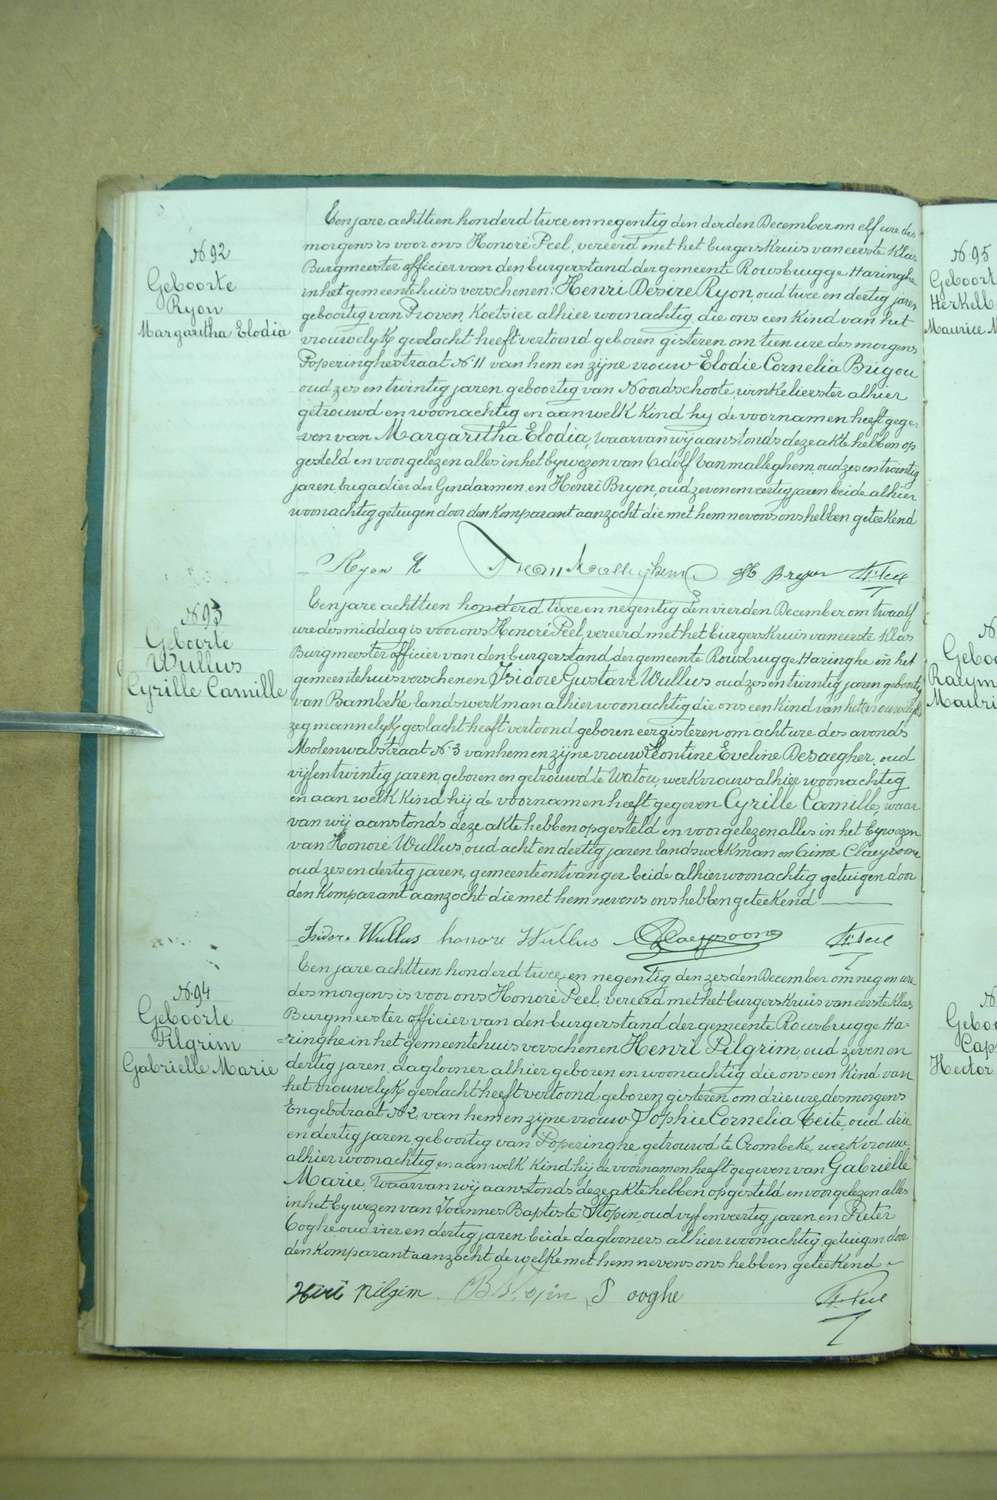 N 92
Geboorte
Ryon
Margaritha Elodia
Een jare achttien honderd twee en negentig den derden December om elf ure des
morgens is voor ons Honoré Peel, vereerd met het burgerskruis van eerste klas
Burgmeester officier van den burgerstand der gemeente Rousbrugge Haringhe
in het gemeentehuis verschenen: Henri Desire Ryon, oud twee en dertig jaren
geboortig van Proven, Koetsier alhier woonachtig die ons een kind van het
vrouwelyk geslacht heeft vertoond geboren gisteren om tien ure des morgens
Poperinghestraat N 11 van hem en zyne vrouw Elodie Cornelia Brigou
oud zes en twintig jaren geboortig van Noordschoote winkelierster alhier
getrouwd en woonachtig en aan welk kind hy de voornamen heeft gege-
ven van Margaritha Elodia, waarvan wij aanstonds deze akte hebben op
gesteld en voorgelezen alles in het bywezen van Adolf Vanmalleghem, oud zes en twintig
jaren brigadier der Gendarmen, en Henri Bryon, oud zeven en veertig jaren beide alhier
woonachtig getuigen door den Komparant aanzocht die met hem nevens ons hebben geteekend
Ryon H Vanmalleghem H Bryon H. Peel
N 93
Geboorte
Wullus
Cyrille Camille
Een jare achttien honderd twee en negentig den vierden December om twaalf
ure des middag is voor ons Honoré Peel, vereerd met het burgerskruis van eerste klas
Burgmeester officier van den burgerstand der gemeente Rousbrugge Haringhe in het
gemeentehuis verschenen Isidore Gustave Wullus oud zes en twintig jaren geboortig
van Bambeke landswerkman alhier woonachtig die ons een kind van het vrouwelyk
zeg mannelyk geslacht heeft vertoond geboren eergisteren om acht ure des avonds
Molenwalstraat N 3 van hem en zijne vrouw Leontine Eveline Desaegher, oud
vijfentwintig jaren, geboren en getrouwd te Watou, werkvrouw alhier woonachtig
en aan welk kind hij de voornamen heeft gegeven Cyrille Camille, waar
van wij aanstonds deze akte hebben opgesteld en voorgelezen alles in het bywezen
van Honoré Wullus, oud acht en dertig jaren landswerkman en Aimé Claeysoone
oud zes en dertig jaren, gemeenteontvanger beide alhier woonachtig getuigen door
den Komparant aanzocht die met hem nevens ons hebben geteekend
Isidor Wullus honoré Wullus Claeysoone H. Peel
N 94
Geboorte
Pilgrim
Gabrielle Marie
Een jare achttien honderd twee en negentig den zesden December om negen ure
des morgens is voor ons Honoré Peel, vereerd met het burgerskruis van eerste klas
Burgmeester officier van den burgerstand der gemeente Rousbrugge Ha-
ringhe in het gemeentehuis verschenen Henri Pilgrim, oud zeven en
dertig jaren, daglooner alhier geboren en woonachtig die ons een kind van
het vrouwelyk geslacht heeft vertoond geboren gisteren om drie ure des morgens
Engelstraat N 2, van hem en zyne vrouw Sophie Cornelia Teite, oud drie
en dertig jaren, geboortig van Poperinghe getrouwd te Crombeke, werkvrouw
alhier woonachtig en aan welk kind hij de voornamen heeft gegeven van Gabrielle
Marie, waarvan wij aanstonds deze akte hebben opgesteld en voorgelezen alles
in het bywezen van Joannes Baptiste Flopin, oud vyfenveertig jaren en Pieter
Coghe oud vier en dertig jaren beide daglooners alhier woonachtig getuigen door
den Komparant aanzocht de welke met hem nevens ons hebben geteekend
Henri Pilgrim P Cooghe H. Peel
N 95
Geboort
Herkelb
Maurice M
N
Geboo
Raeym
Mauri
N
Geboo
Cap
Hector